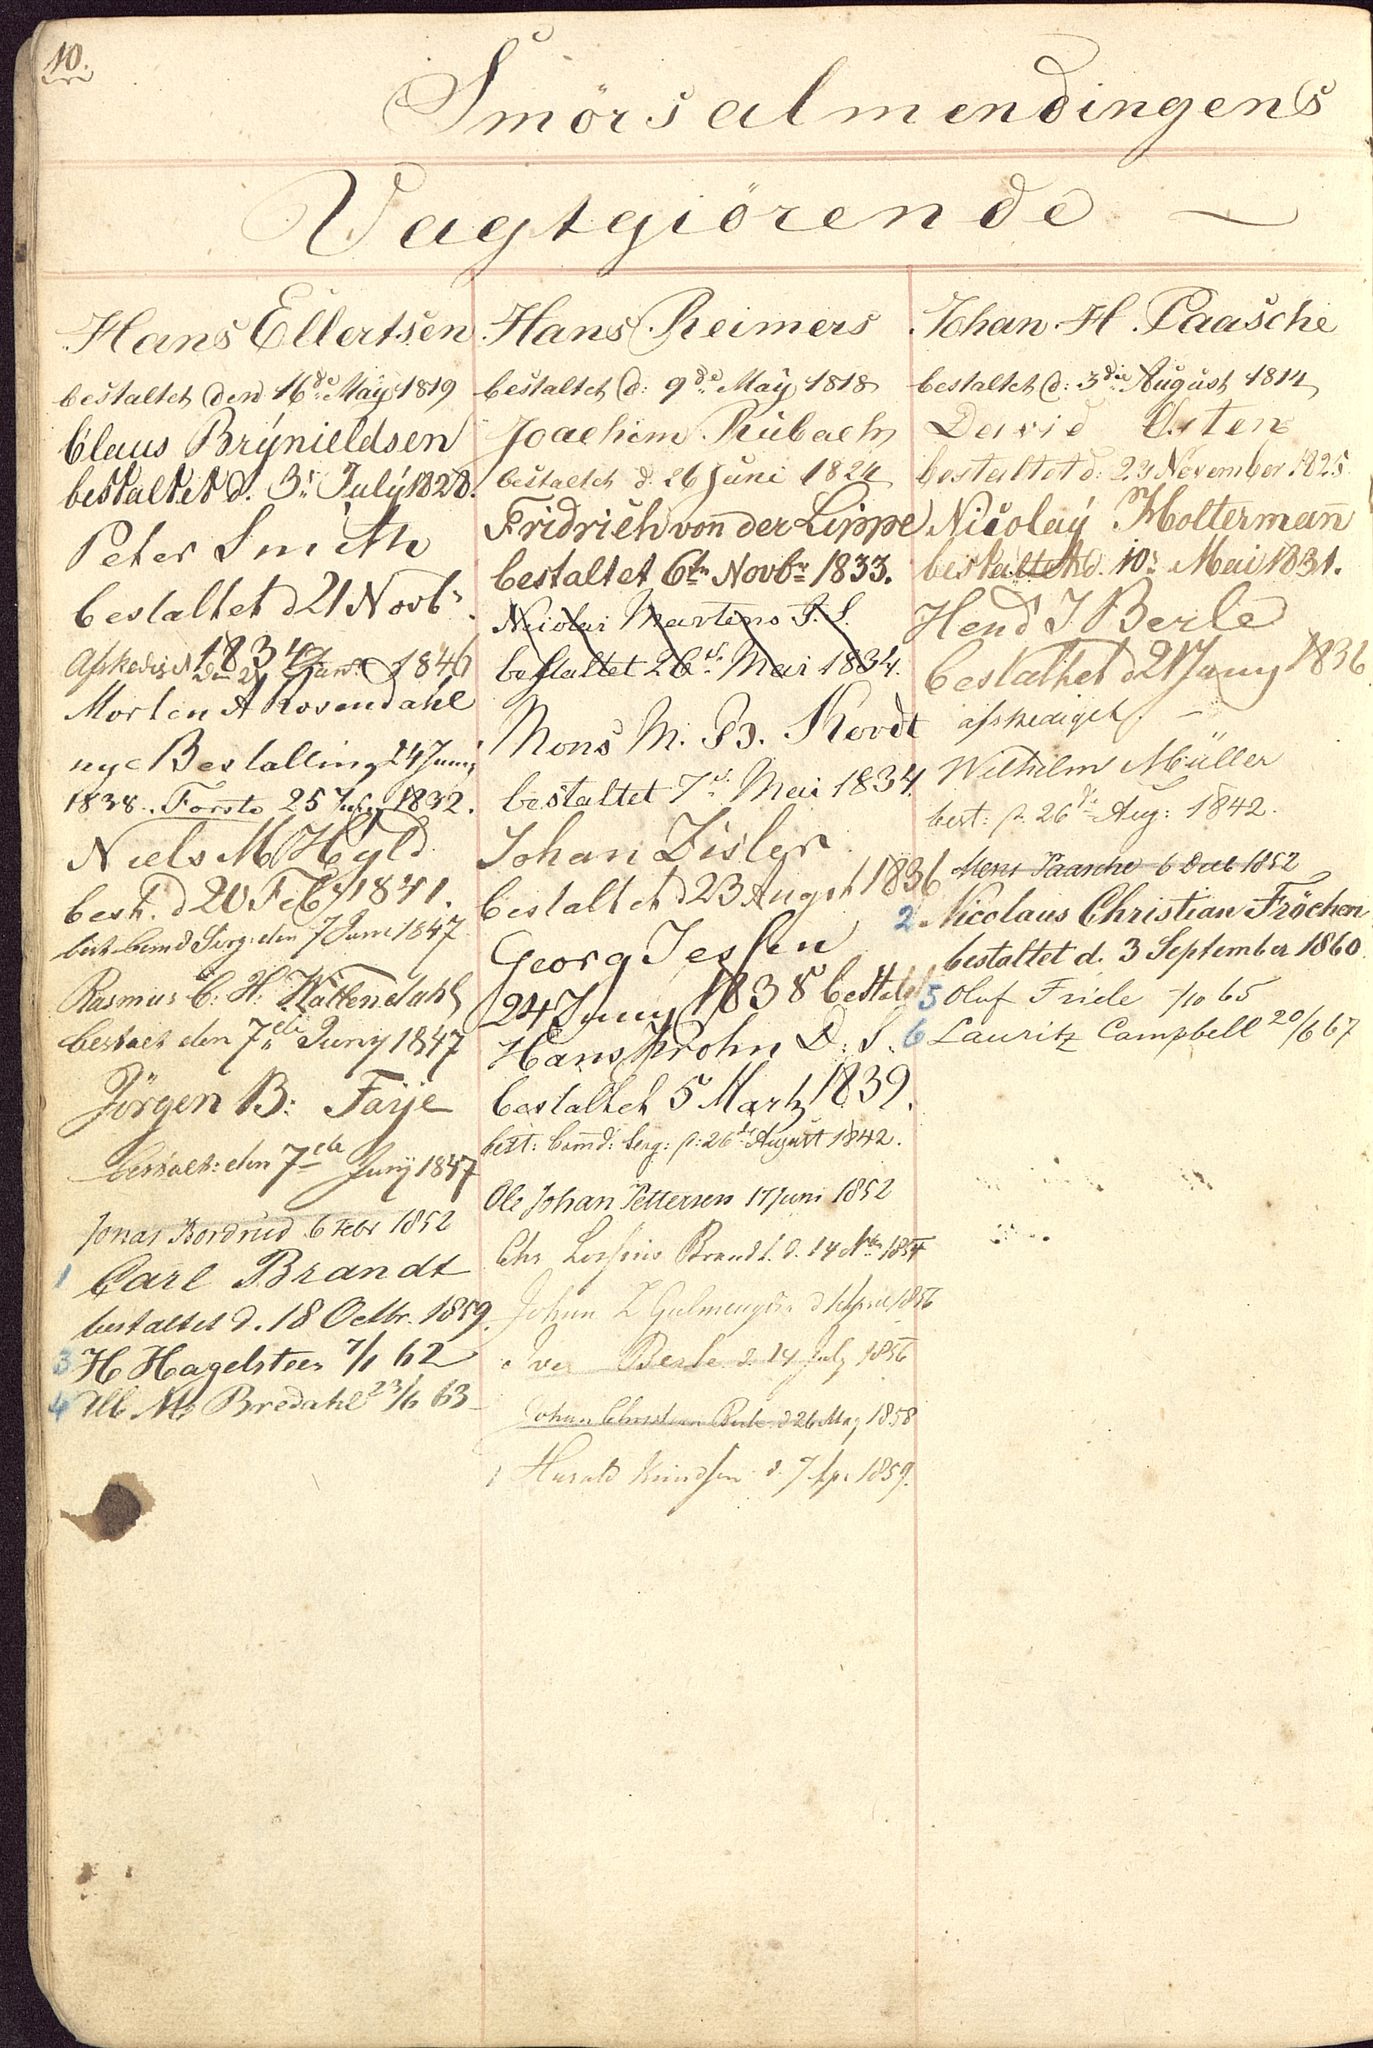 10.
Smörsalmendingens
Vagtgiörende
Hans Ellertsen
bestaltet den 16de May 1819
Claus Brÿnieldsen
bestaltet d. 3. Julÿ 1828.
Peter Smith
bestaltet d 21 Novbr
1834
Afskediget Den 2 Janr 1846
Morten A Rosendahl
nye Bestalling 24 Juny
1838. Förste 25 July 1832.
Niels M Hyld
best. d 20 Feby 1841.
best. Comd Serg: den 7 Juni 1847
Rasmus C. H: Wallendahl
bestalt den 7de Juny 1847
Jörgen B: Faÿe
bestalt: den 7de Junÿ 1847
Jonas Bordrud 6 Febr 1852
1 Carl Brandt
bestaltet d. 18 Octbr. 1859.
3 H Hagelsteen 7/1 62
4 M Bredahl 23/6 63
Hans Reimers
bestaltet d: 9de May 1818
Joachim Rübach
bestaltet d. 26 Juni 1824
Fridrich von der Lippe
bestaltet 6te Novbr 1833.
Nicolai Martens S. S.
bestaltet 26de Mai 1834.
Mons M. B. Kordt
bestaltet 7de Mai 1834.
Johan Zisler
bestaltet d 23 Augst 1836
Georg Jessen
24 Juny 1838 bestalt
Hans Krohn D. S.
bestaltet 5 Martz 1839.
best: Comd: Serg: p: 26de August 1842.
Ole Johan Pettersen 17 Juni 1852
Chr Brandt d. 14 1854
Johan L d April 1856
Iver Berle d. 14 July 1856
Johan Christian Berle d 26 May 1858
1 Harald Knudsen d. 7 Apr 1859.
Johan H. Paasche
bestaltet d: 3die August 1814
David Osten
bestaltet d: 23 November 1825
Nicolaÿ Holtermañ
bestaltet d. 10: Mai 1831.
Hend J Berle
bestaltet d 21 Juny 1836
afskediget.
Wilhilm Müller
best: p. 26de Aug: 1842.
Mens Paasche 6 Decb 1852
2 Nicolaus Christian Fröchen
bestaltet d. 3 September 1860.
5 Oluf Friele 7/10 65
6 Lauritz Campbell 20/6 67